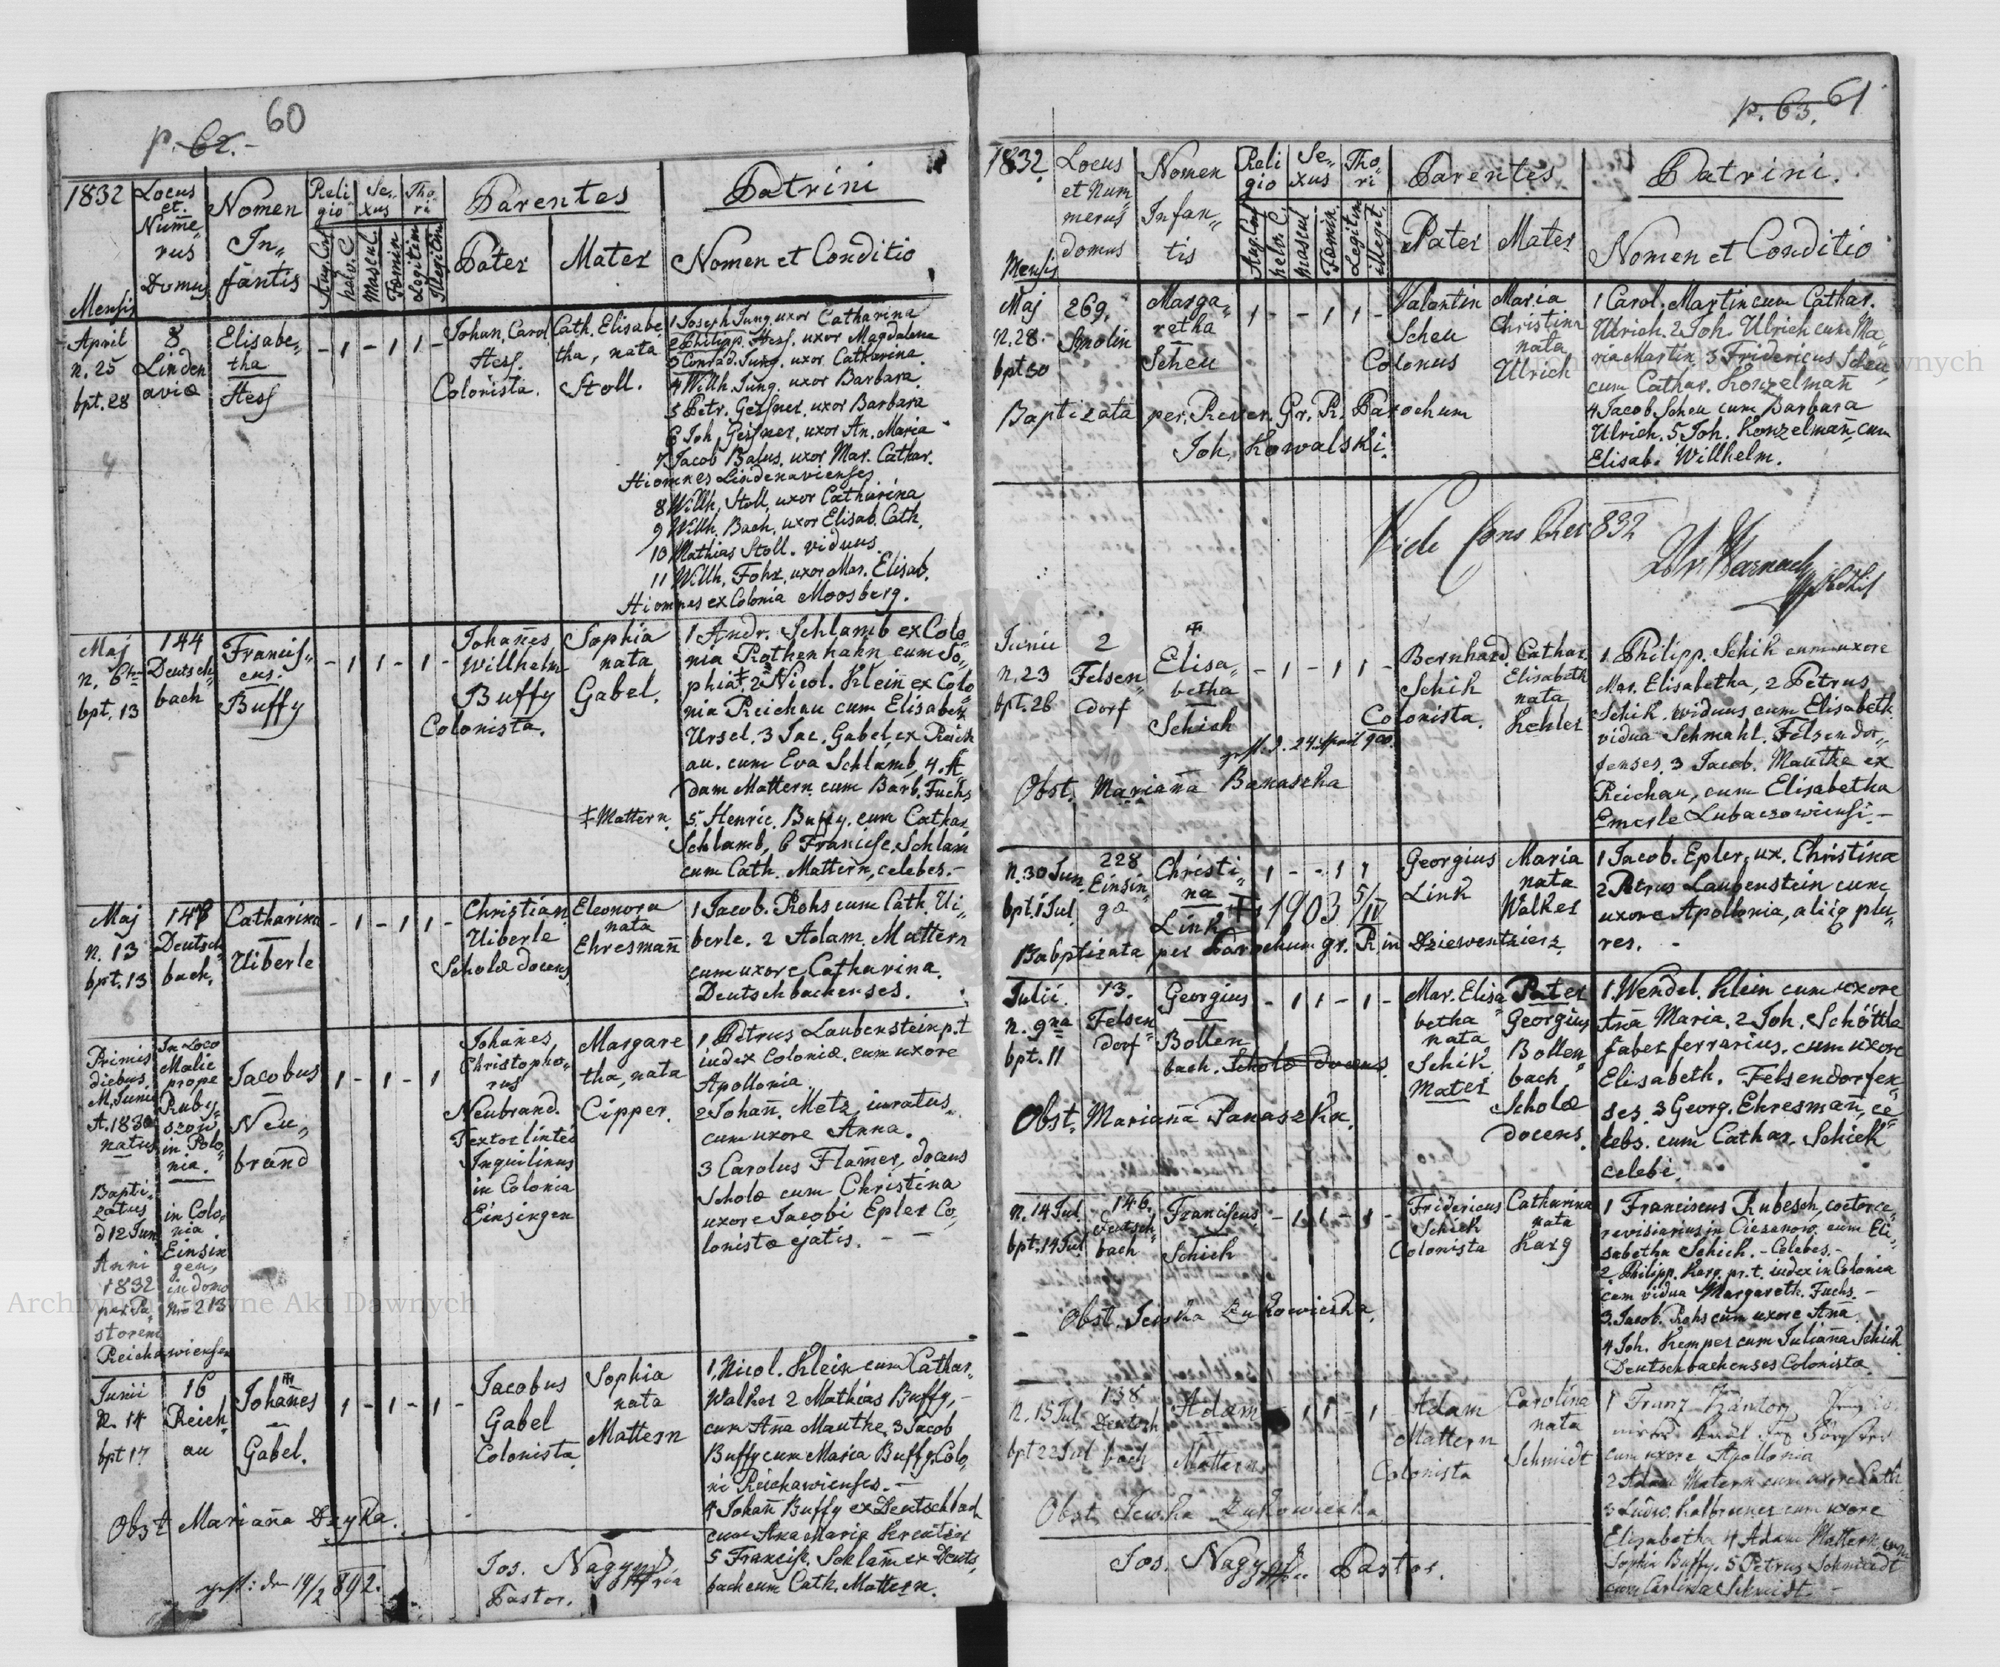 p. 62. 60
1832
Locus et Nume-rus Domus
Nomen In-fantis
Reli gio
Se-xus
Tho-ri
Parentes
Patrini
Mensis
Aug. Con
helv. C
Mascul.
Fœmin.
Legitim
Illegitim
Pater
Mater
Nomen et Conditio
April
n. 25
bpt. 28
8
Linden
aviæ
Elisabe-
tha
Hess
- 1 - 1 1 -
Johan. Carol
Hess.
Colonista.
Cath. Elisabe
tha, nata
Stoll.
1 Joseph Jung. uxor Catharina
2 Philipp. Hess. uxor Magdalena
3 Conrad. Jung. uxor Catharina.
4 Willh. Jung. uxor Barbara.
5 Petr. Geisner. uxor Barbara
6 Joh. Geisner, uxor An. Maria
7 Jacob Balus. uxor Mar. Cathar.
Hi omnes Lindenavienses
8 Willh. Stoll, uxor Catharina
9 Willh. Bach, uxor Elisab. Cath.
10 Mathias Stoll. viduus.
11 Willh. Fohz, uxor Mar. Elisab.
Hi omnes ex Colonia Moosberg.
4
Maj
n. 6
bpt. 13
144
Deutsch-
bach
Francis-
cus.
Buffy
- 1 1 - 1 -
Johañes
Willhelm
Buffy
Colonista.
Sophia
nata
Gabel.
1 Andr. Schlamb ex Colo-
nia Rothenhahn cum So-
phia ‡ 2 Nicol. Klein ex Colo
nia Reichau cum Elisabet
Ursel. 3 Jac. Gabel, ex Reich
au. cum Eva Schlamb, 4. A
dam Mattern. cum Barb. Fuchs
‡ Mattern. 5. Henric. Buffy. cum Cathar.
Schlamb, 6 Francisc. Schlam
cum Cath. Mattern, celebes. -
5
Maj
n. 13
bpt. 13
148
Deutsch
bach.
Catharina
Uiberle
- 1 - 1 1 -
Christian
Uiberle
Scholæ docens
Eleonora
nata
Ehresmañ
1 Jacob. Rohs cum Cath. Ui-
berle. 2 Adam. Mattern
cum uxore Catharina.
Deutschbachenses.
6
Primis
diebus
M. Junii
A. 1830
natus
Bapti-
zatus
d 12 Jun
Anni
1832
per Pa
storem
Reichawiensem
In Loco
Malie
prope
Ruby-
szow
in Polo-
nia.
in Colo-
nia
Einsin
gen,
in domo
Nro 213
Jacobus
Neu-
brand
1 - 1 - 1
Johañes
Christopho-
rus
Neubrand.
Textor lintei
Inquilinus
in Colonia
Einsingen
Margare
tha, nata
Cipper.
1 Petrus Laubenstein p. t
iudex Coloniæ. cum uxore
Apollonia.
2 Johañ. Metz, iuratus.
cum uxore Anna.
3 Carolus Flamer, docens
Scholæ cum Christina
uxore Jacobi Epler Co-
lonistæ ejatis. - -
Junii
N. 14
bpt 17
16
Reich
au
Johañes
Gabel.
1 - 1 - 1 -
Jacobus
Gabel
Colonista
Sophia
nata
Mattern
1. Nicol. Klein cum Cathar.
Walker 2 Mathias Buffy, -
cum Aña Mauthe. 3 Jacob
Buffy cum Maria Buffy. Colo-
ni Reichawienses. -
4 Johañ Buffy ex Deutschbach
cum Ana Maria Kreutzer
5 Francisc. Schlam ex Deuts-
bach cum Cath. Mattern.
Obst Mariaña Dzyka.
Jos. Nagy
Pastor.
gest: den 14/2 892.
p. 63. 61
1832.
Mensis
Locus
et Num-
merus
domus
Nomen
Infan-
tis
Reli
gio
Se-
xus
Tho-
ri
Parentes
Patrini.
Aug. Conf
helv. C.
mascul
Fœmin.
Legitim
illegit.
Pater
Mater
Nomen et Conditio
Maj
n. 28.
bpt 30
269.
Smolin
Marga-
retha
Scheu
1 - - 1 1 -
Valentin
Scheu
Colonus
Maria
Christina
nata
Ulrich
1 Carol. Martin cum Cathar.
Ulrich. 2 Joh. Ulrich cum Ma-
ria Martin 3 Fridericus Scheu,
cum Cathar. Konzelmañ
4 Jacob Scheu cum Barbara
Ulrich. 5 Joh. Konzelmañ, cum
Elisab. Willhelm.
Baptizata per. Rever. Gr. R. Parochum
Joh. Kowalski.
Vide 832
Junii
n. 23
bpt. 26
2
Felsen-
dorf
Elisa-
betha
Schich
- 1 - 1 1 -
Bernhard.
Schik
Colonista.
Cathar.
Elisabeth
nata
Kehler
1. Philipp. Schik cum uxore
Mar. Elisabetha, 2 Petrus
Schik. viduus cum Elisabeth.
vidua Schmahl. Felsendor-
fenses. 3 Jacob. Mauthe ex
Reichau, cum Elisabetha
Emerle Lubaczowiensi. -
gest. d. 24 April 900.
Obst. Mariaña Banascha
n. 30 Jun.
bpt. 1 Jul.
228
Einsin
ga
Christi-
na
Link
1 - - 1 1
1903 5/IV
Georgius
Link
Maria
nata
Walker
1 Jacob. Epler, ux. Christina
2 Petrus Laubenstein cum
uxore Apollonia, aliiq plu-
res. -
Babptizata per Parochum gr. R. in Dziewentzierz
Julii.
n. 9na
bpt. 11
13.
Felsen
dorf
Georgius
Bollen
bach. Scholæ docens.
- 1 1 - 1 -
Mar. Elisa
betha
nata
Schik
Mater
Pater
Georgius
Bollen
bach
Scholæ
docens.
1. Wendel. Klein cum uxore
Aña Maria. 2 Joh. Schöttle
faber ferrarius. cum uxore
Elisabeth. Felsendorfen
ses. 3 Georg. Ehresmañ, ce-
lebs. cum Cathar. Schick
celebi.
Obst. Mariaña Panaszka.
n. 14 Jul.
bpt. 14 Jul
146.
Deutsch-
bach
Franciscus
Schick
- 1 1 - 1 -
Fridericus
Schick
Colonista
Catharina
nata
Karg
1 Franciscus Rubesch, coctor ce-
revisiarius in Ciesanow, cum Eli-
sabetha Schich. - Celebes. -
2 Philipp. Karg. pr. t. iudex in Colonia
cum vidua Margareth. Fuchs. -
3. Jacob. Rohs cum uxore Aña
4 Joh. Kemper cum Juliana Schich
Deutschbachenses Colonistæ
Obst. Jewka Zukowiecka.
N. 15 Jul
bpt 22 Jul
138
Deutsch
bach
Adam
Mattern
1 1 - 1
Adam
Mattern
Colonista
Carolina
nata
Schmidt
1 Franz
cum uxore Apollonia
2 Adam Matern cum uxore Cath
3 Ludw. Kalbrunner cum uxore
Elizabetha 4 Adam Mattern, cum
Sophia Buffy. 5 Petrus Schmiedt
cum Carlina Schmidt. -
Obst. Jewka Zukowiecka
Jos. Nagy Pastor.
Archiwum Główne Akt Dawnych
Archiwum Główne Akt Dawnych